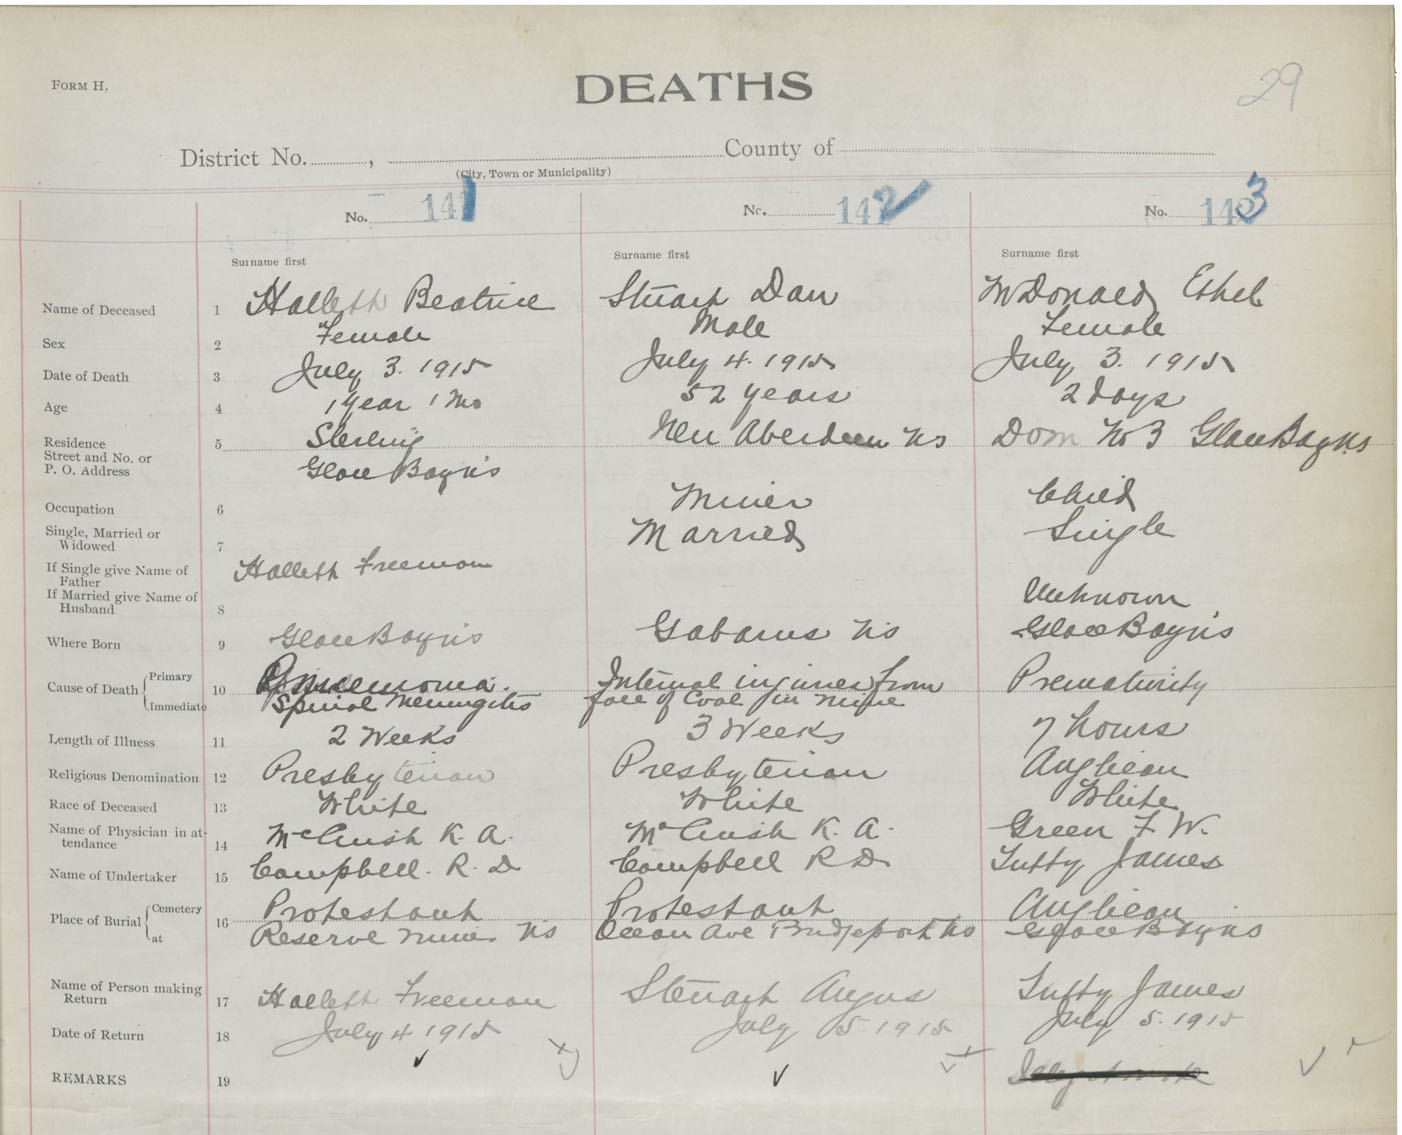 FORM H.
DEATHS
29
District No. , County of
(City, Town or Municipality)
No. 141 No. 142 No. 143
Surname first Surname first Surname first
Name of Deceased 1 Halleth Beatrice Stuart Dan McDonald Ethel
Sex 2 Female Male Female
Date of Death 3 July 3. 1915 July 4. 1915 July 3. 1915
Age 4 1 year 1 Mo 52 years 2 days
Residence 5 Sterling New Aberdeen NS Dom No 3 Glace Bay NS
Street and No. or
P. O. Address Glace Bay NS
Occupation 6 Miner Child
Single, Married or
Widowed 7 Married Single
If Single give Name of
Father Halleth Freeman
If Married give Name of
Husband 8 Unknown
Where Born 9 Glace Bay NS Gabarus NS Glace Bay NS
Cause of Death Primary 10 Pneumonia. Internal injuries from Prematurity
Immediate Spinal Meningitis fall of Coal in mine
Length of Illness 11 2 Weeks 3 Weeks 7 hours
Religious Denomination 12 Presbyterian Presbyterian Anglican
Race of Deceased 13 White White White
Name of Physician in at-
tendance 14 McCuish K. A. McCuish K. A. Green F. W.
Name of Undertaker 15 Campbell. R. D Campbell R D Tutty James
Place of Burial Cemetery 16 Protestant Protestant Anglican
at Reserve Mines NS Ocean Ave Bridgeport NS Glace Bay NS
Name of Person making
Return 17 Halleth Freeman Stewart Angus Tutty James
Date of Return 18 July 4 1915 July 5 1915 July 5. 1915
REMARKS 19